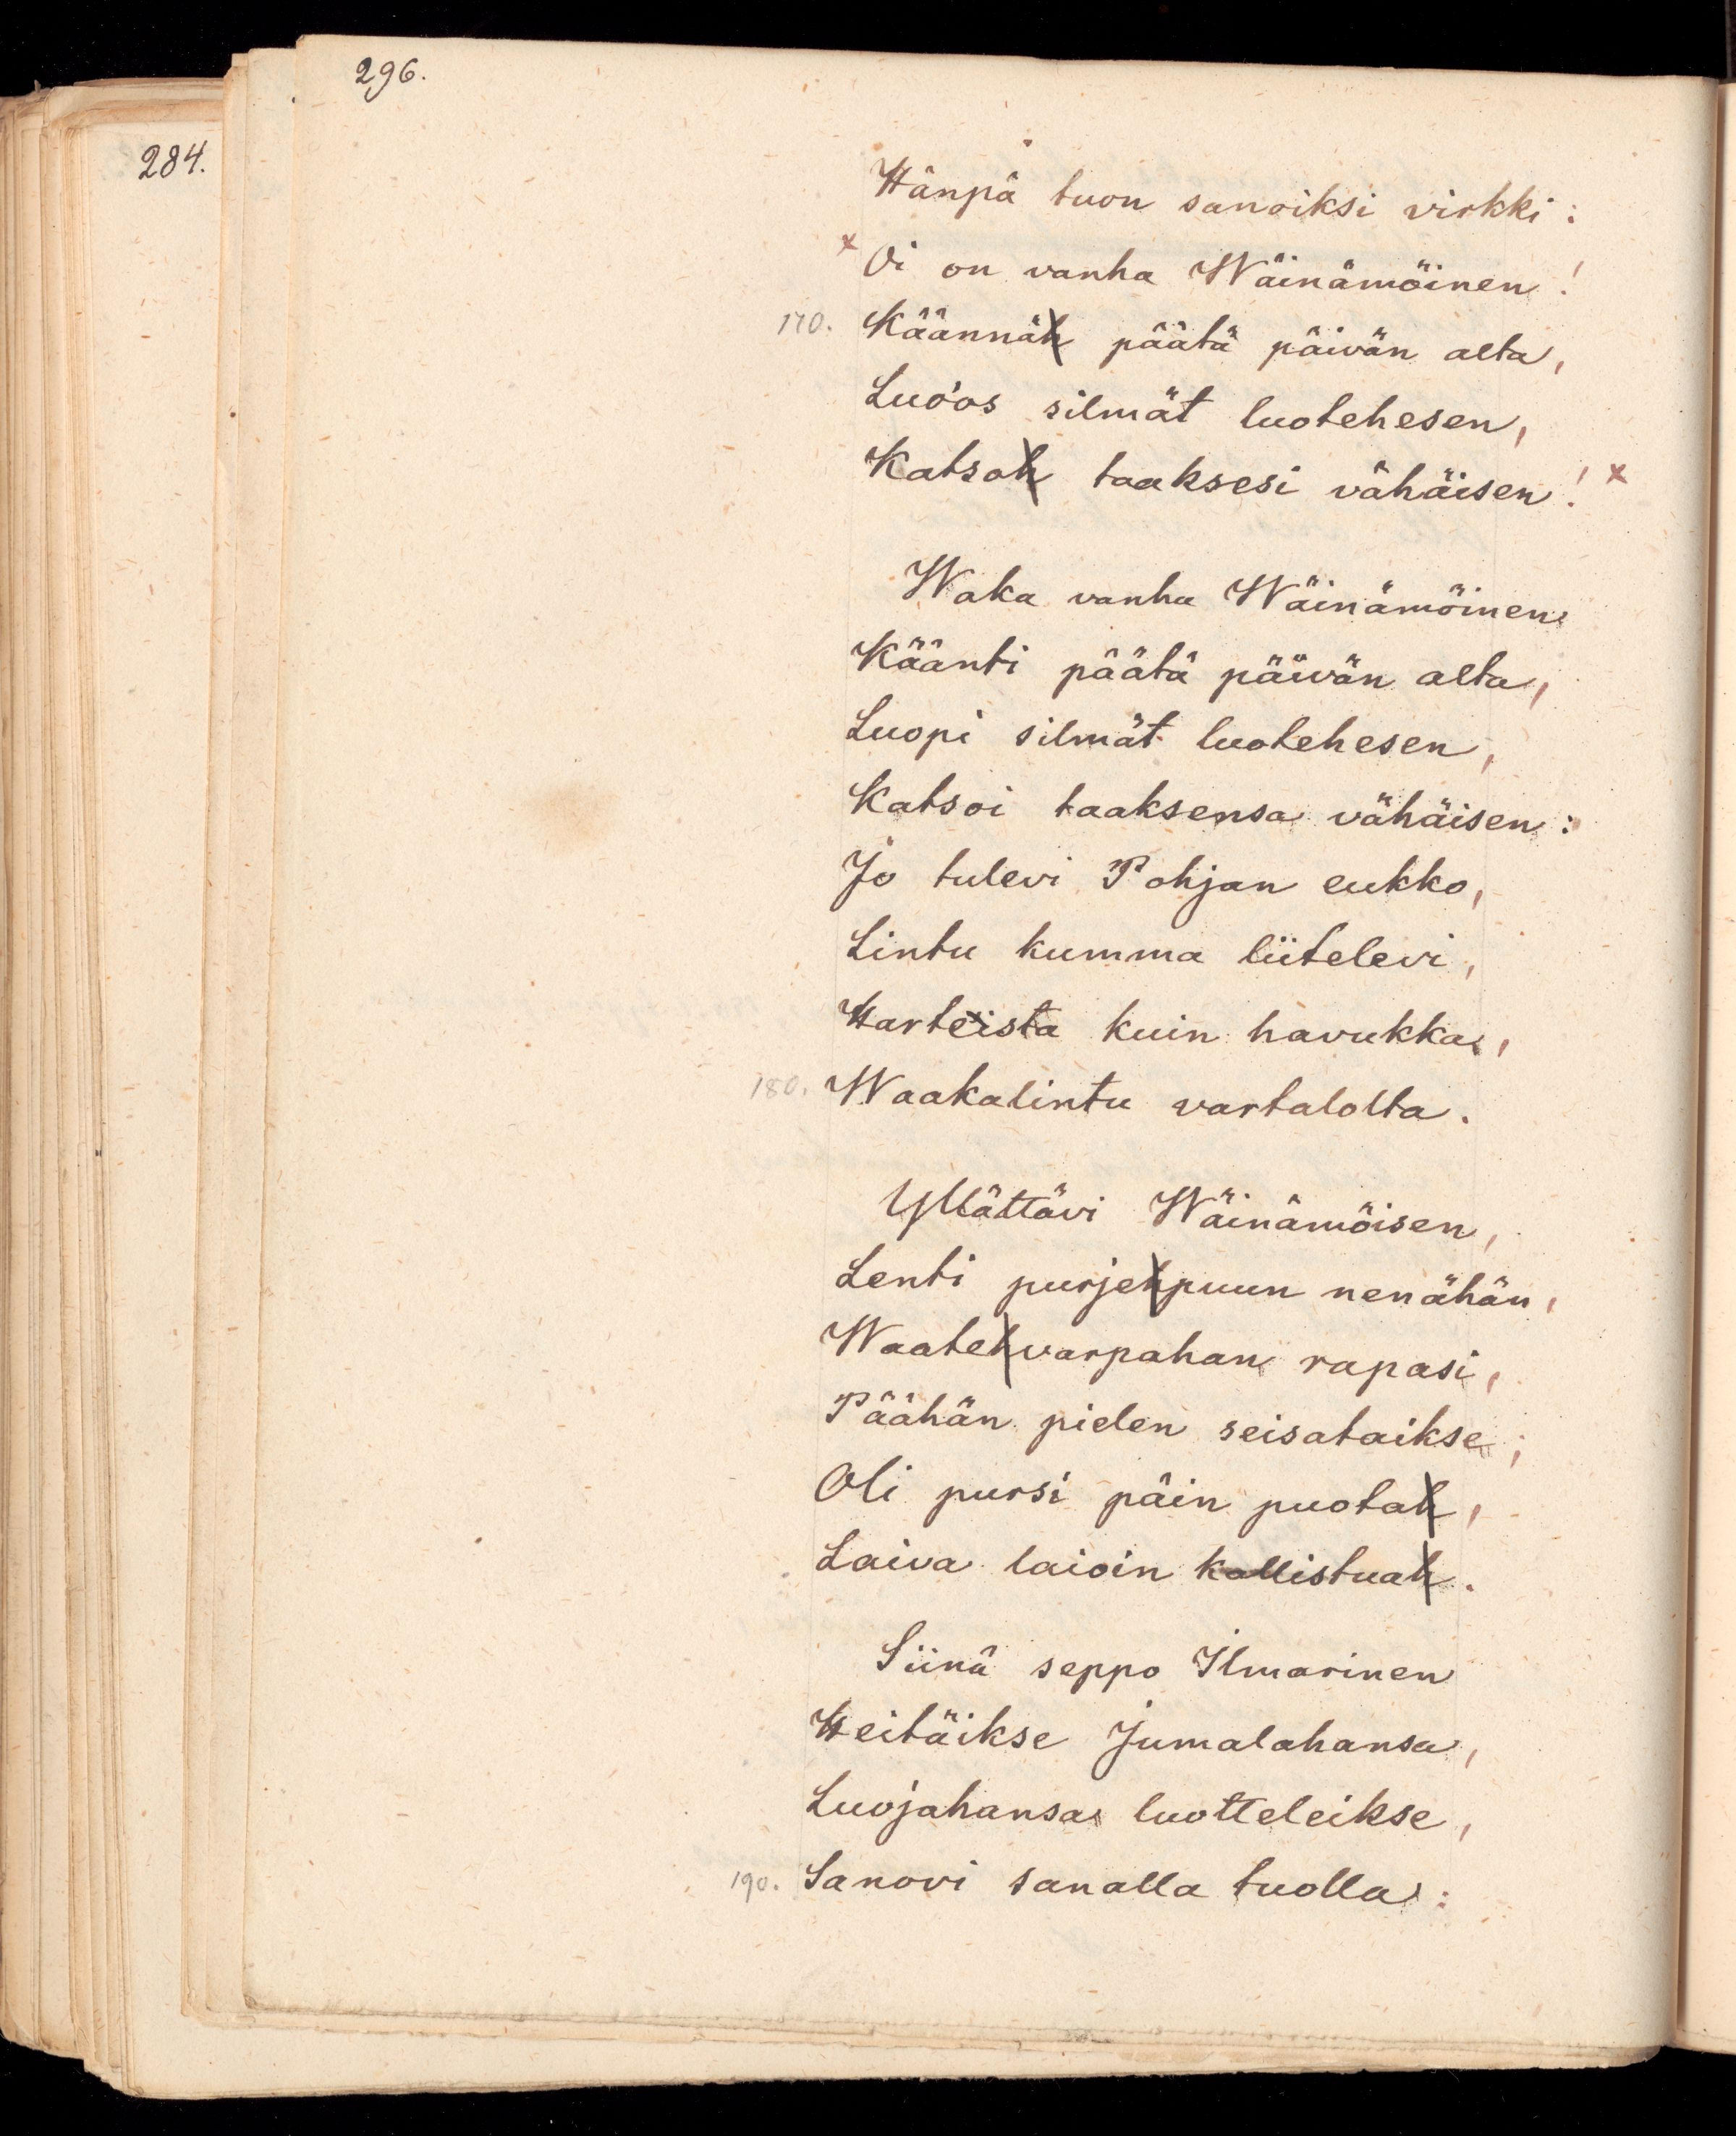 296.
284.
Hänpä tuon sanoiksi virkki:
x Oi on vanha Wäinämöinen!
170. Käännäh päätä päivän alta,
Luo'os silmät luotehesen,
Katsoh taaksesi vähäisen! x
Waka vanha Wäinämöinen
Käänti päätä päivän alta,
Luopi silmät luotehesen,
Katsoi taaksensa vähäisen:
Jo tulevi Pohjan eukko,
Lintu kumma liitelevi,
Harteista kuin havukka,
180. Waakalintu vartalolta.
Yllättävi Wäinämöisen,
Lenti purjehpuun nenähän,
Waatehvarpahan rapasi,
Päähän pielen seisataikse;
Oli pursi päin puotah,
Laiva laioin kallistuah.
Siinä seppo Ilmarinen
Heitäikse Jumalahansa,
Luojahansa luotteleikse,
190. Sanovi sanalla tuolla: